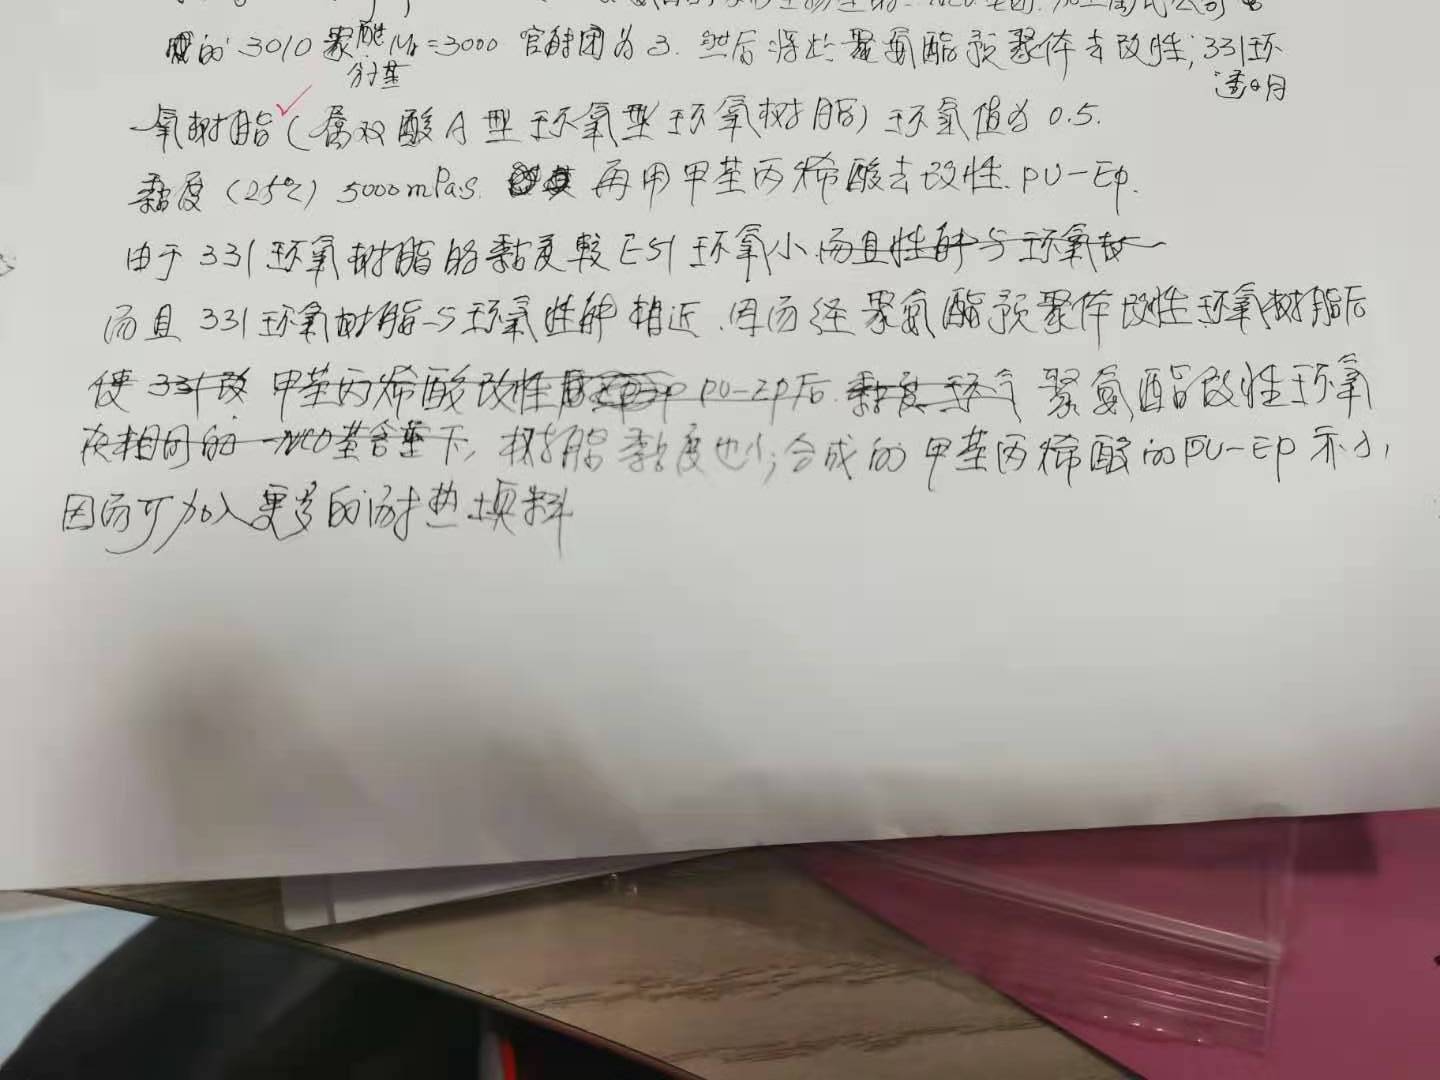 的 3010 聚醚 Mn=3000 官能团为3. 然后将此聚氨酯预聚体去改性; 331环
分子量
透明
氧树脂 (属双酸A型环氧型环氧树脂) 环氧值为 0.5.
黏度 (25℃) 5000mPa.s. 再用甲基丙烯酸去改性. PU-Ep.
由于 331 环氧树脂的黏度较 E51 环氧小 而且性能与环氧树
而且 331 环氧树脂与环氧性能相近. 因而经聚氨酯预聚体改性环氧树脂后
使 331 改 甲基丙烯酸改性 PU-Ep后. 黏度 环氧 聚氨酯改性环氧
在相同的 -NCO基含量下, 树脂黏度也小; 合成的甲基丙烯酸的PU-Ep亦小,
因而可加入更多的耐热填料